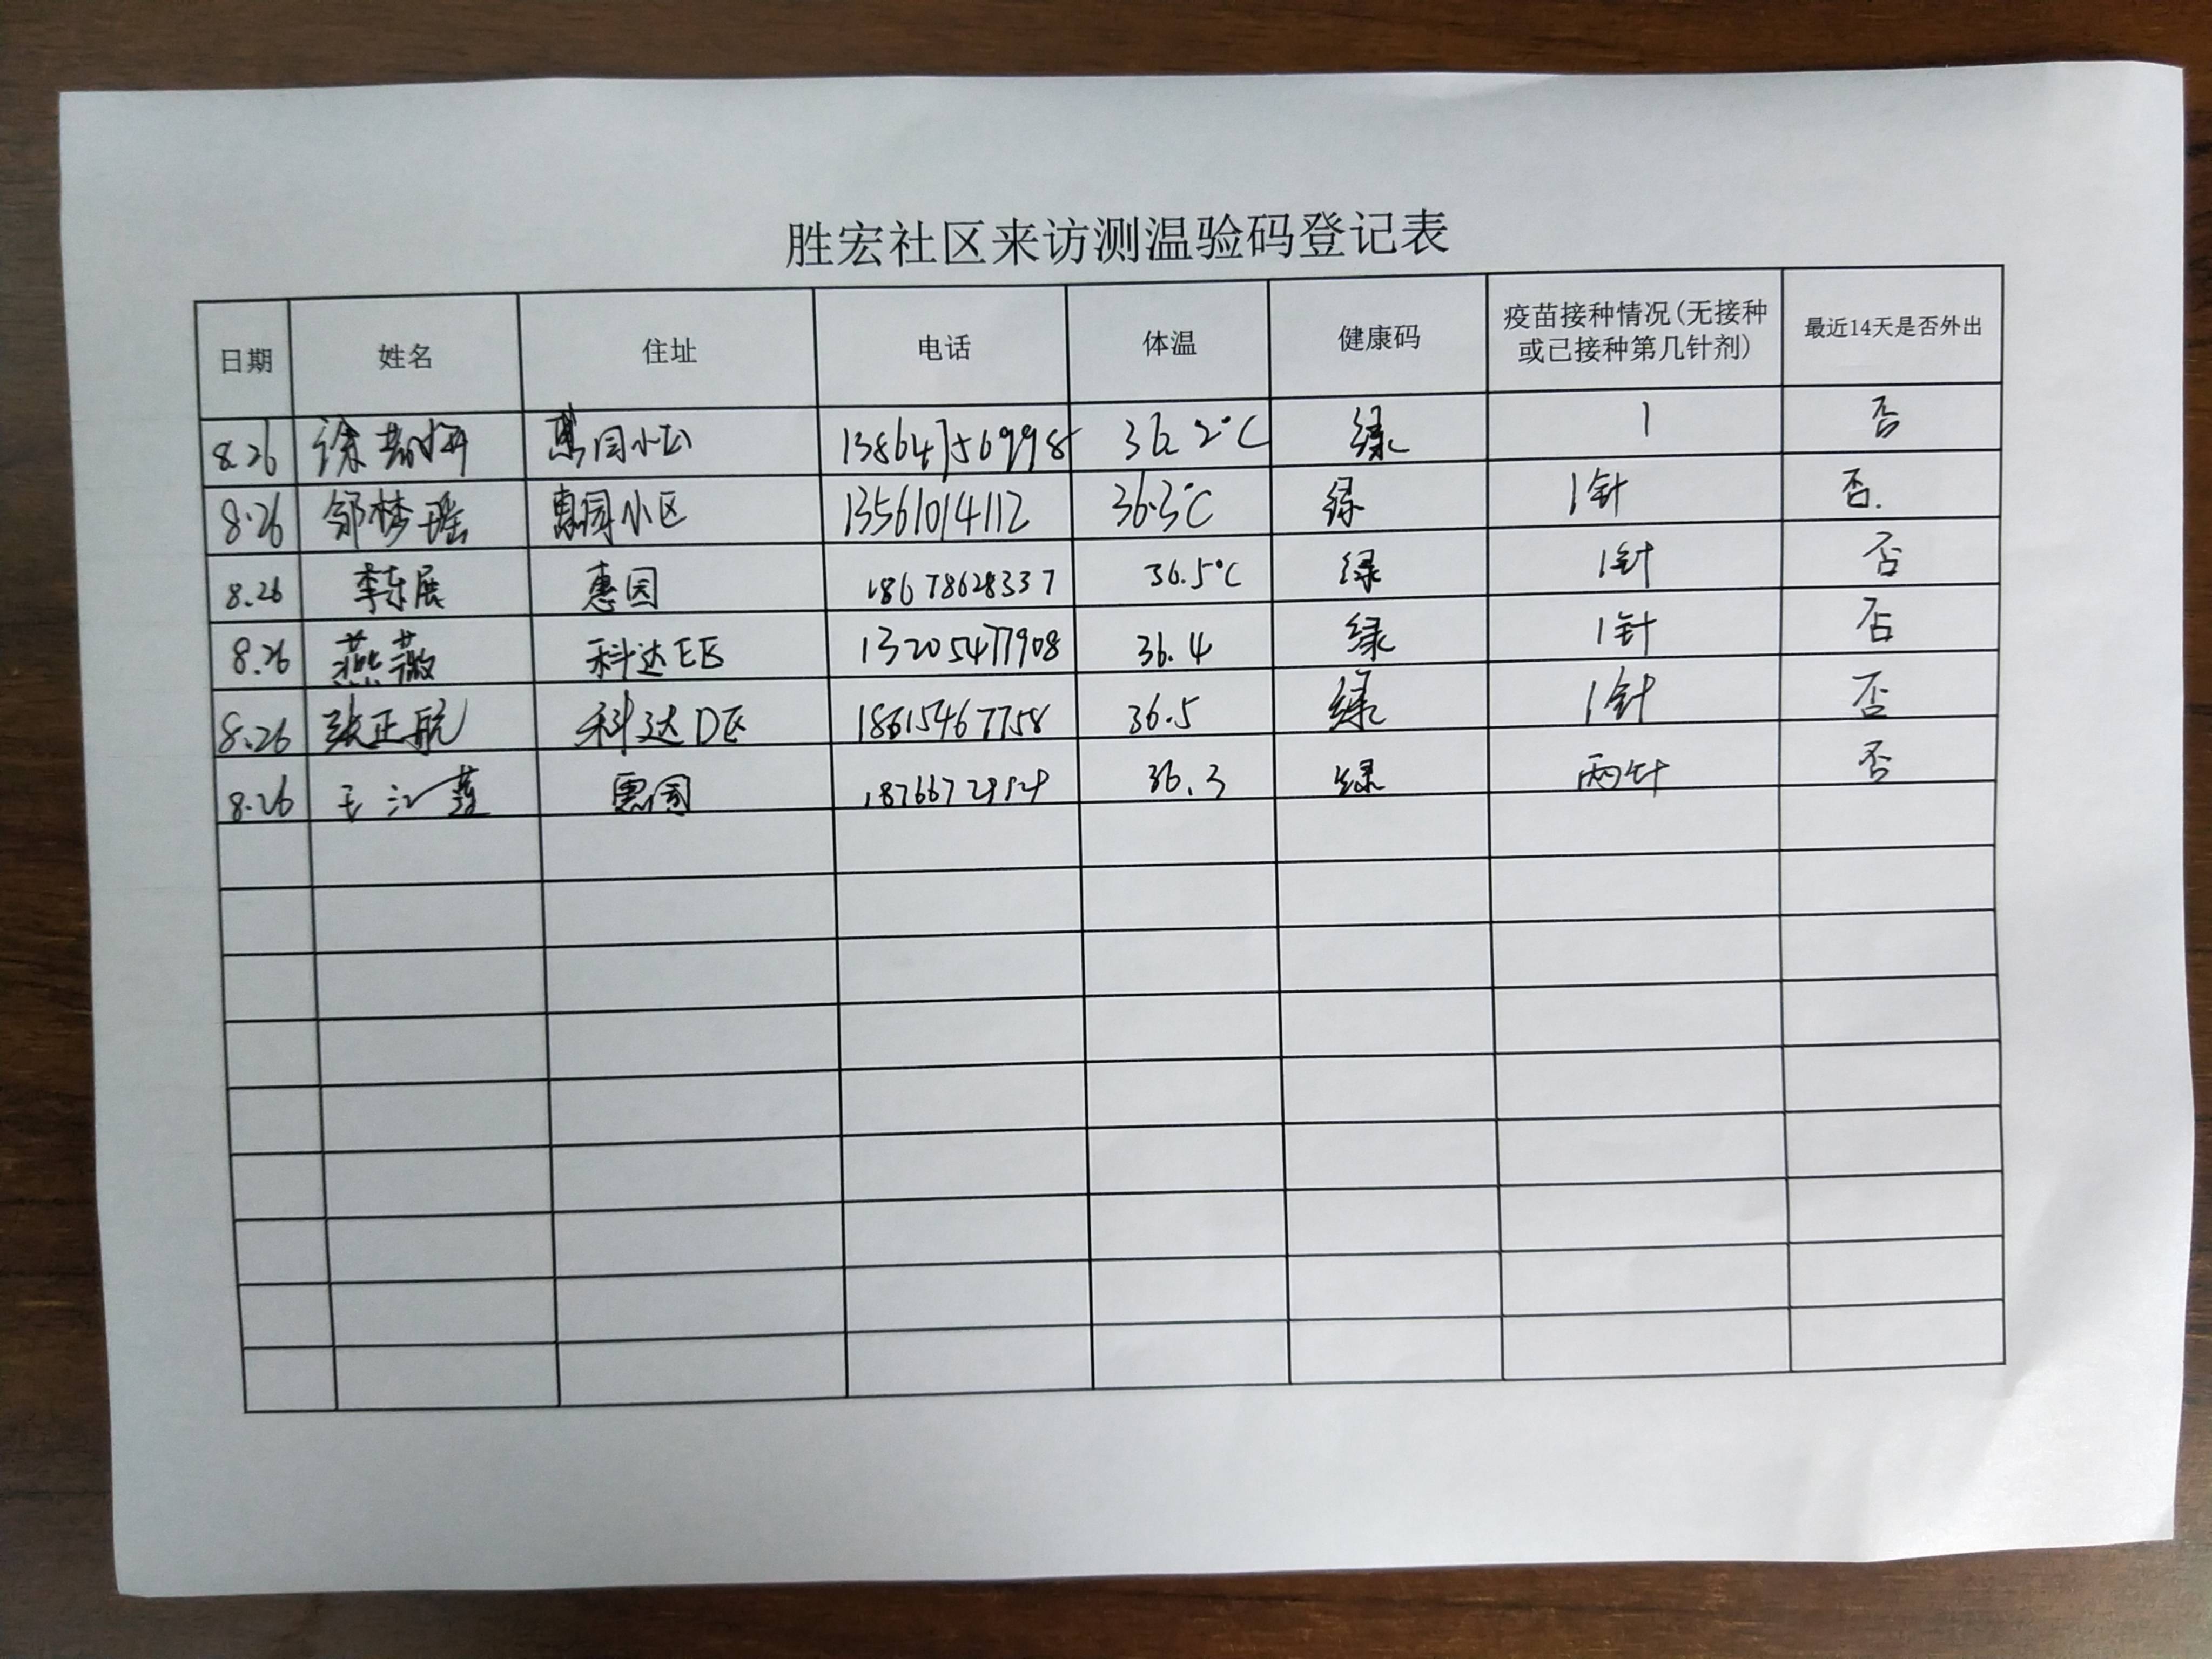 胜宏社区来访测温验码登记表
日期 姓名 住址 电话 体温 健康码 疫苗接种情况(无接种或已接种第几针剂) 最近14天是否外出
8.26 惠园小区 36.2°C 绿 1 否
8.26 邹梦瑶 惠园小区 13561014112 36.3°C 绿 1针 否.
8.26 李东展 惠园 18678628337 36.5°C 绿 1针 否
8.26 燕薇 科达E区 13205477908 36.4 绿 1针 否
8.26 张正航 科达D区 18615467758 36.5 绿 1针 否
8.26 惠园 36.3 绿 两针 否